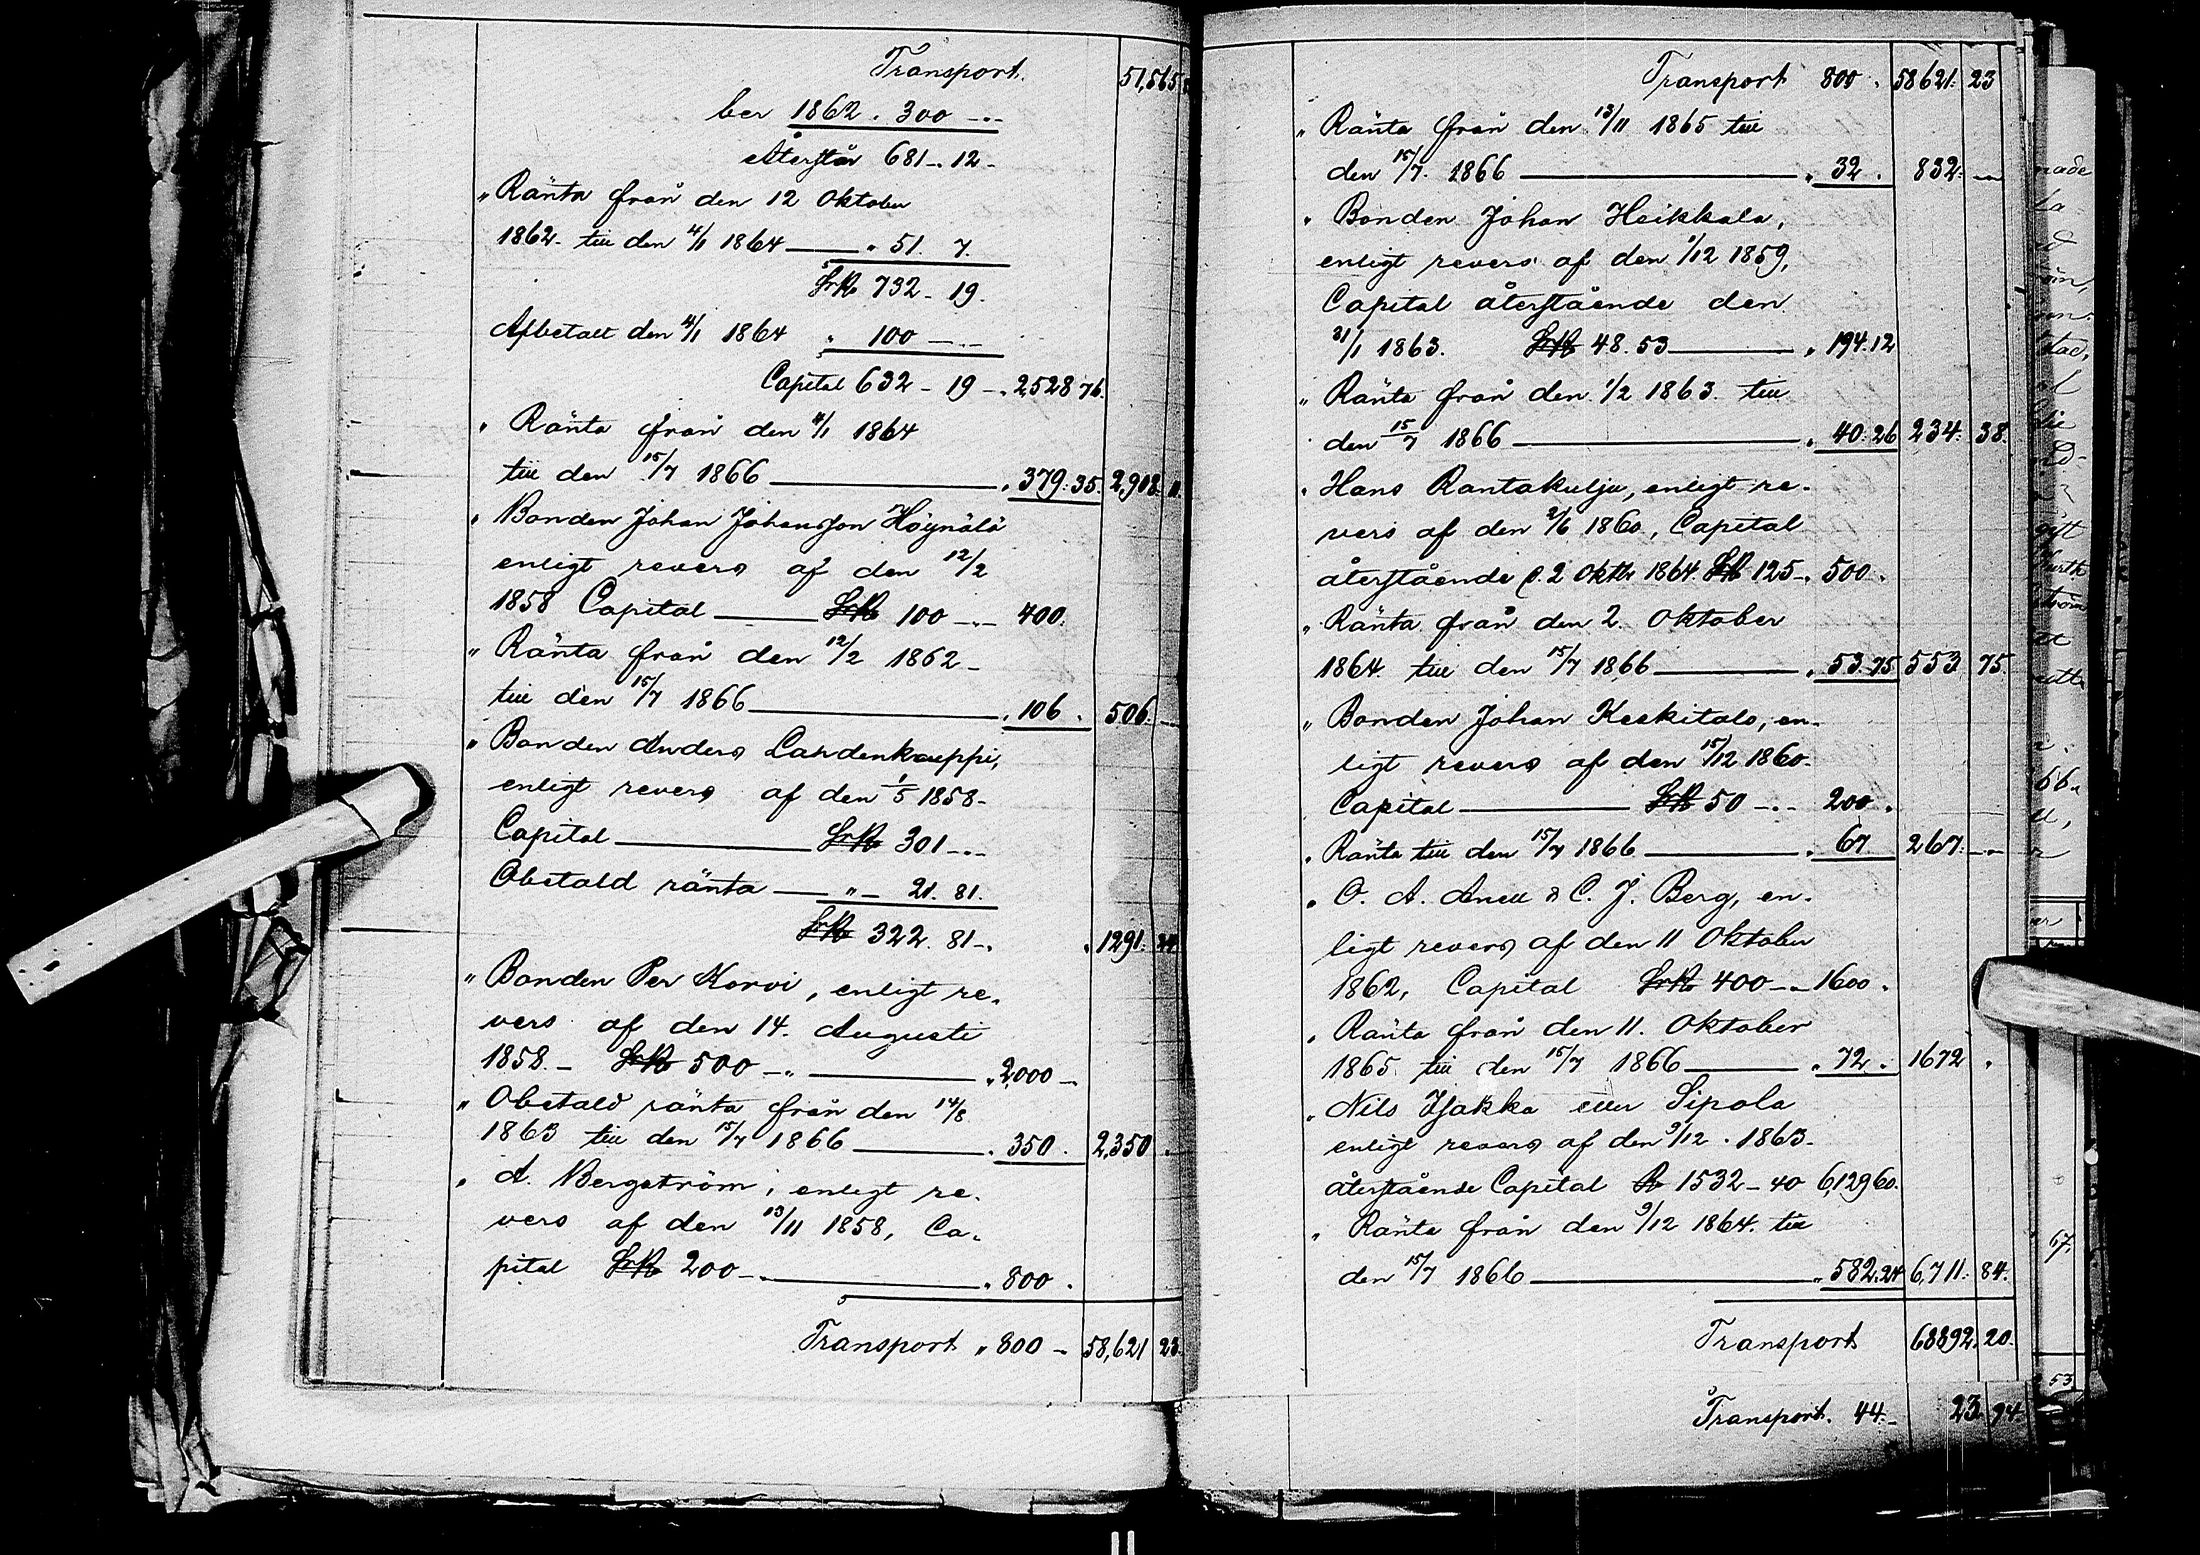 Transport. 51,565
ber 1862 . 300 –"–
Återstår 681 –. 12 –
" Ränta från den 12 Oktober
1862 – till den 4/1 1864 — " 51. 7.
SRb 732 – 19.
Afbetalt den 4/1 1864 " 100 –"–
Capital 632 – 19 –. 2528 76.
" Ränta från den 4/1 1864
till den 15/7 1866 — " 379. 35. 2,908. 11.
" Bonden Johan Johansson Höynälä
enligt revers af den 12/2
1858 Capital — SRb 100 –"– 400.
" Ränta från den 12/2 1862 –
till den 15/7 1866 — " 106 . 506. —
" Bonden Anders Landenkauppi,
enligt revers af den 1/5 1858 –
Capital — SRb 301 –"–
Obetald ränta — " – 21. 81.
SRb 322. 81 –. " 1291. 24.
" Bonden Per Korvi, enligt re-
vers af den 14. Augusti
1858. – SRb 500 –"– — " 2,000 –
" Obetald ränta från den 14/8
1863 till den 15/7 1866 — " 350 . 2,350 .
" A. Bergström, enligt re-
vers af den 13/11 1858, Ca-
pital SRb 200 –"– — " 800 .
Transport " 800 – 58,621 23.
Transport 800 . 58621. 23
" Ränta från den 13/11 1865 till
den 15/7. 1866 — " 32 . 832. —
" Bonden Johan Heikkala,
enligt revers af den 1/12 1859,
Capital återstående den
31/1 1863. SRb 48. 53 — " 194. 12
" Ränta från den 1/2 1863. till
den 15/7 1866 — " 40. 26 234. 38.
" Hans Rantakulju, enligt re-
vers af den 2/6 1860, Capital
återstående d. 2 Oktbr 1864. SRb 125 –. 500 .
" Ränta från den 2. Oktober
1864. till den 15/7 1866 — " 53. 75 553 75.
" Bonden Johan Keskitalo, en-
ligt revers af den 15/12 1860.
Capital — SRb 50 –"– 200 .
" Ränta till den 15/7 1866 — " 67 267. —
" O. A. Anell & C. J. Berg, en-
ligt revers af den 11 Oktober
1862, Capital SRb 400 –"– 1600 .
" Ränta från den 11. Oktober
1865 till den 15/7 1866 — " 72 . 1672 .
" Nils Isakka eller Sipola
enligt revers af den 9/12 . 1863 –
återstående Capital Rb 1532 – 40 6,129 60.
" Ränta från den 9/12 1864. till
den 15/7 1866 — " 582. 24 6,711. 84.
Transport 68892. 20.
Transport. 44 – 23 94.